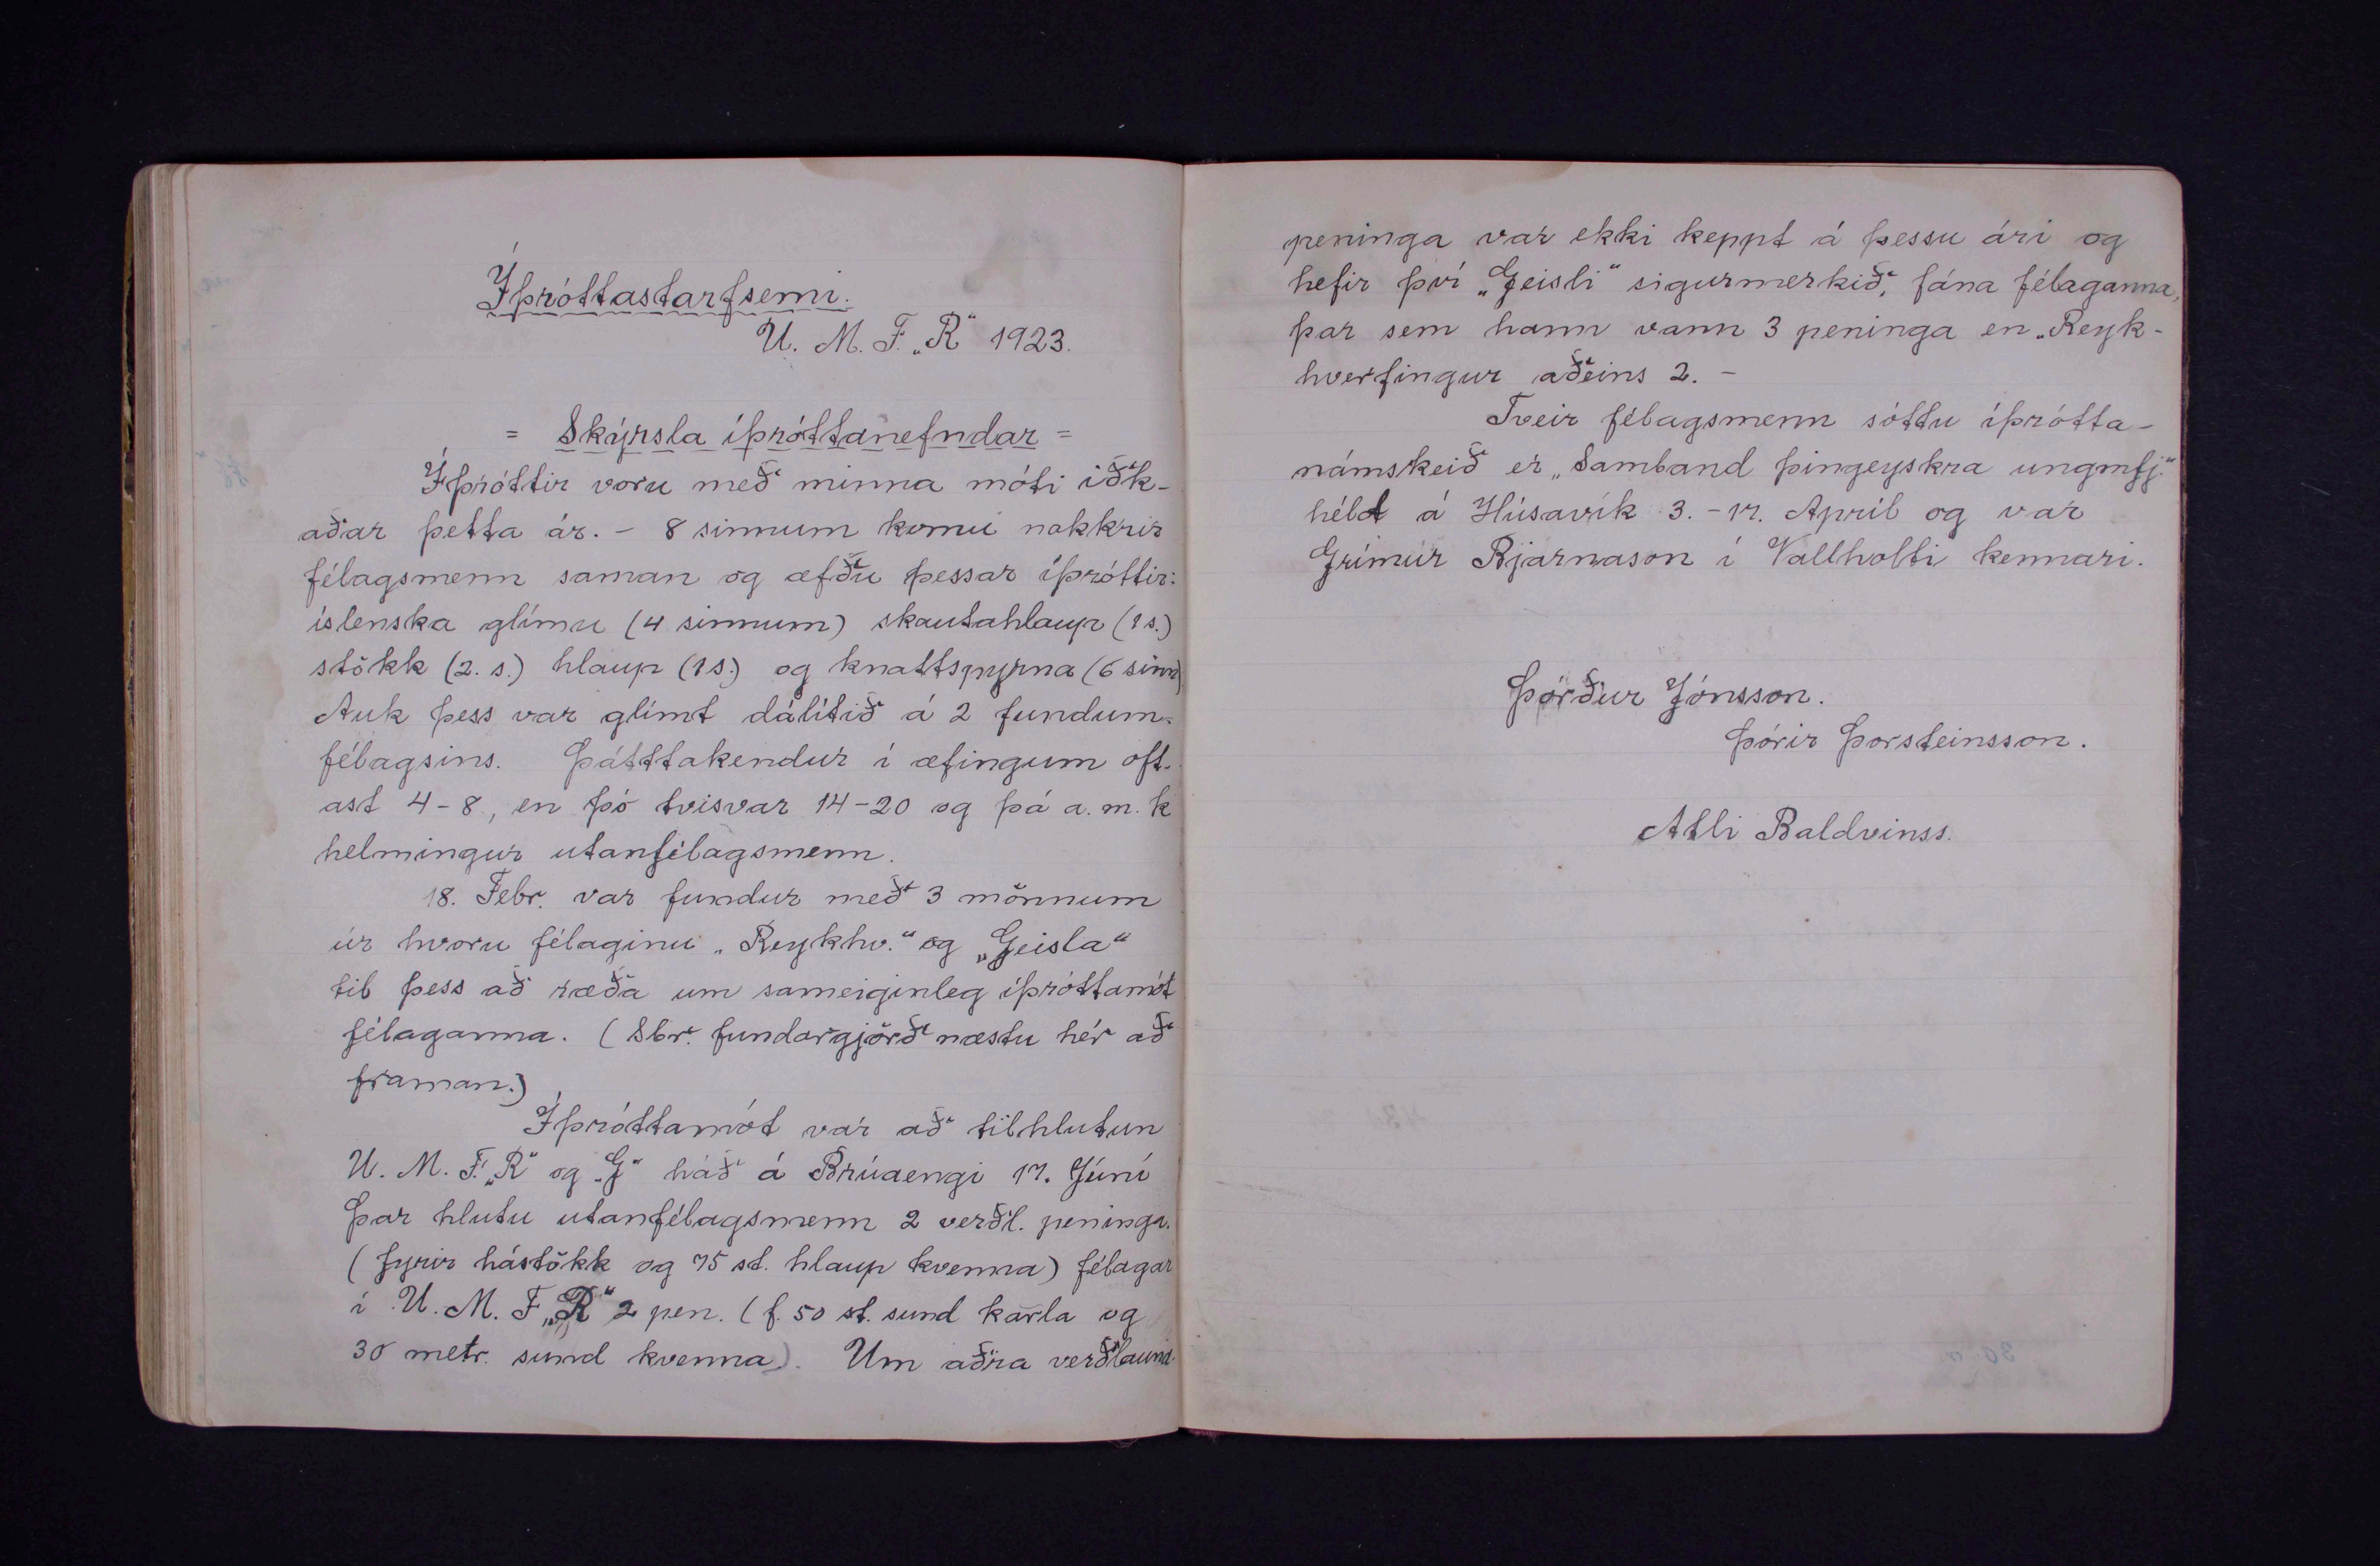 Íþróttastarfsemi.
U. M. F. „R“ 1923.
= Skýrsla íþróttanefndar =
Íþróttir voru með minna móti iðk-
aðar þetta ár. - 8 sinnum komu nokkrir
félagsmenn saman og æfðu þessar íþróttir:
íslenska glímu (4 sinnum) skautahlaup (1 s.)
stökk (2. s.) hlaup (1 s.) og knattspyrna (6 sinn)
Auk þess var glímt dálítið á 2 fundum
félagsins. Þátttakendur í æfingum oft-
ast 4-8, en þó tvisvar 14-20 og þá a. m. k
helmingur utanfélagsmenn.
18. Febr. var fundur með 3 mönnum
úr hvoru félaginu „Reykhv.“ og „Geisla“
til þess að ræða um sameiginleg íþróttamót
félaganna. (Sbr. fundargjörð næstu hér að
framan.)
Íþróttamót var að tilhlutun
U. M. F. „R“ og „G“ háð á Brúaengi 17. Júní
Þar hlutu utanfélagsmenn 2 verðl. peninga.
(fyrir hástökk og 75 st. hlaup kvenna) félagar
í U. M. F „R“ 2 pen. (f. 50 st. sund karla og
30 metr. sund kvenna). Um aðra verðlauna-
peninga var ekki keppt á þessu ári og
hefir því „Geisli“ sigurmerkið, fána félaganna,
þar sem hann vann 3 peninga en „Reyk-
hverfingur aðeins 2. -
Tveir félagsmenn sóttu íþrótta-
námskeið er „Samband þingeyskra ungmfj.“
hélt á Húsavík 3. - 17. Apríl og var
Grímur Bjarnason í Vallholti kennari.
Þórður Jónsson.
Þórir Þorsteinsson.
Atli Baldvinss.